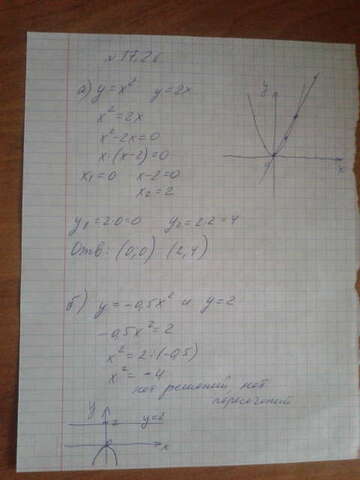 № 17.26
а) y = x² y = 2x
x² = 2x
x² - 2x = 0
x·(x-2) = 0
x₁ = 0 x-2 = 0
x₂ = 2
y₁ = 2·0 = 0 y₂ = 2·2 = 4
Отв: (0,0) (2,4)
y
x
0
б) y = -0,5x² и y = 2
-0,5x² = 2
x² = 2:(-0,5)
x² = -4
нет решений нет
пересечений
y
2 y=2
x